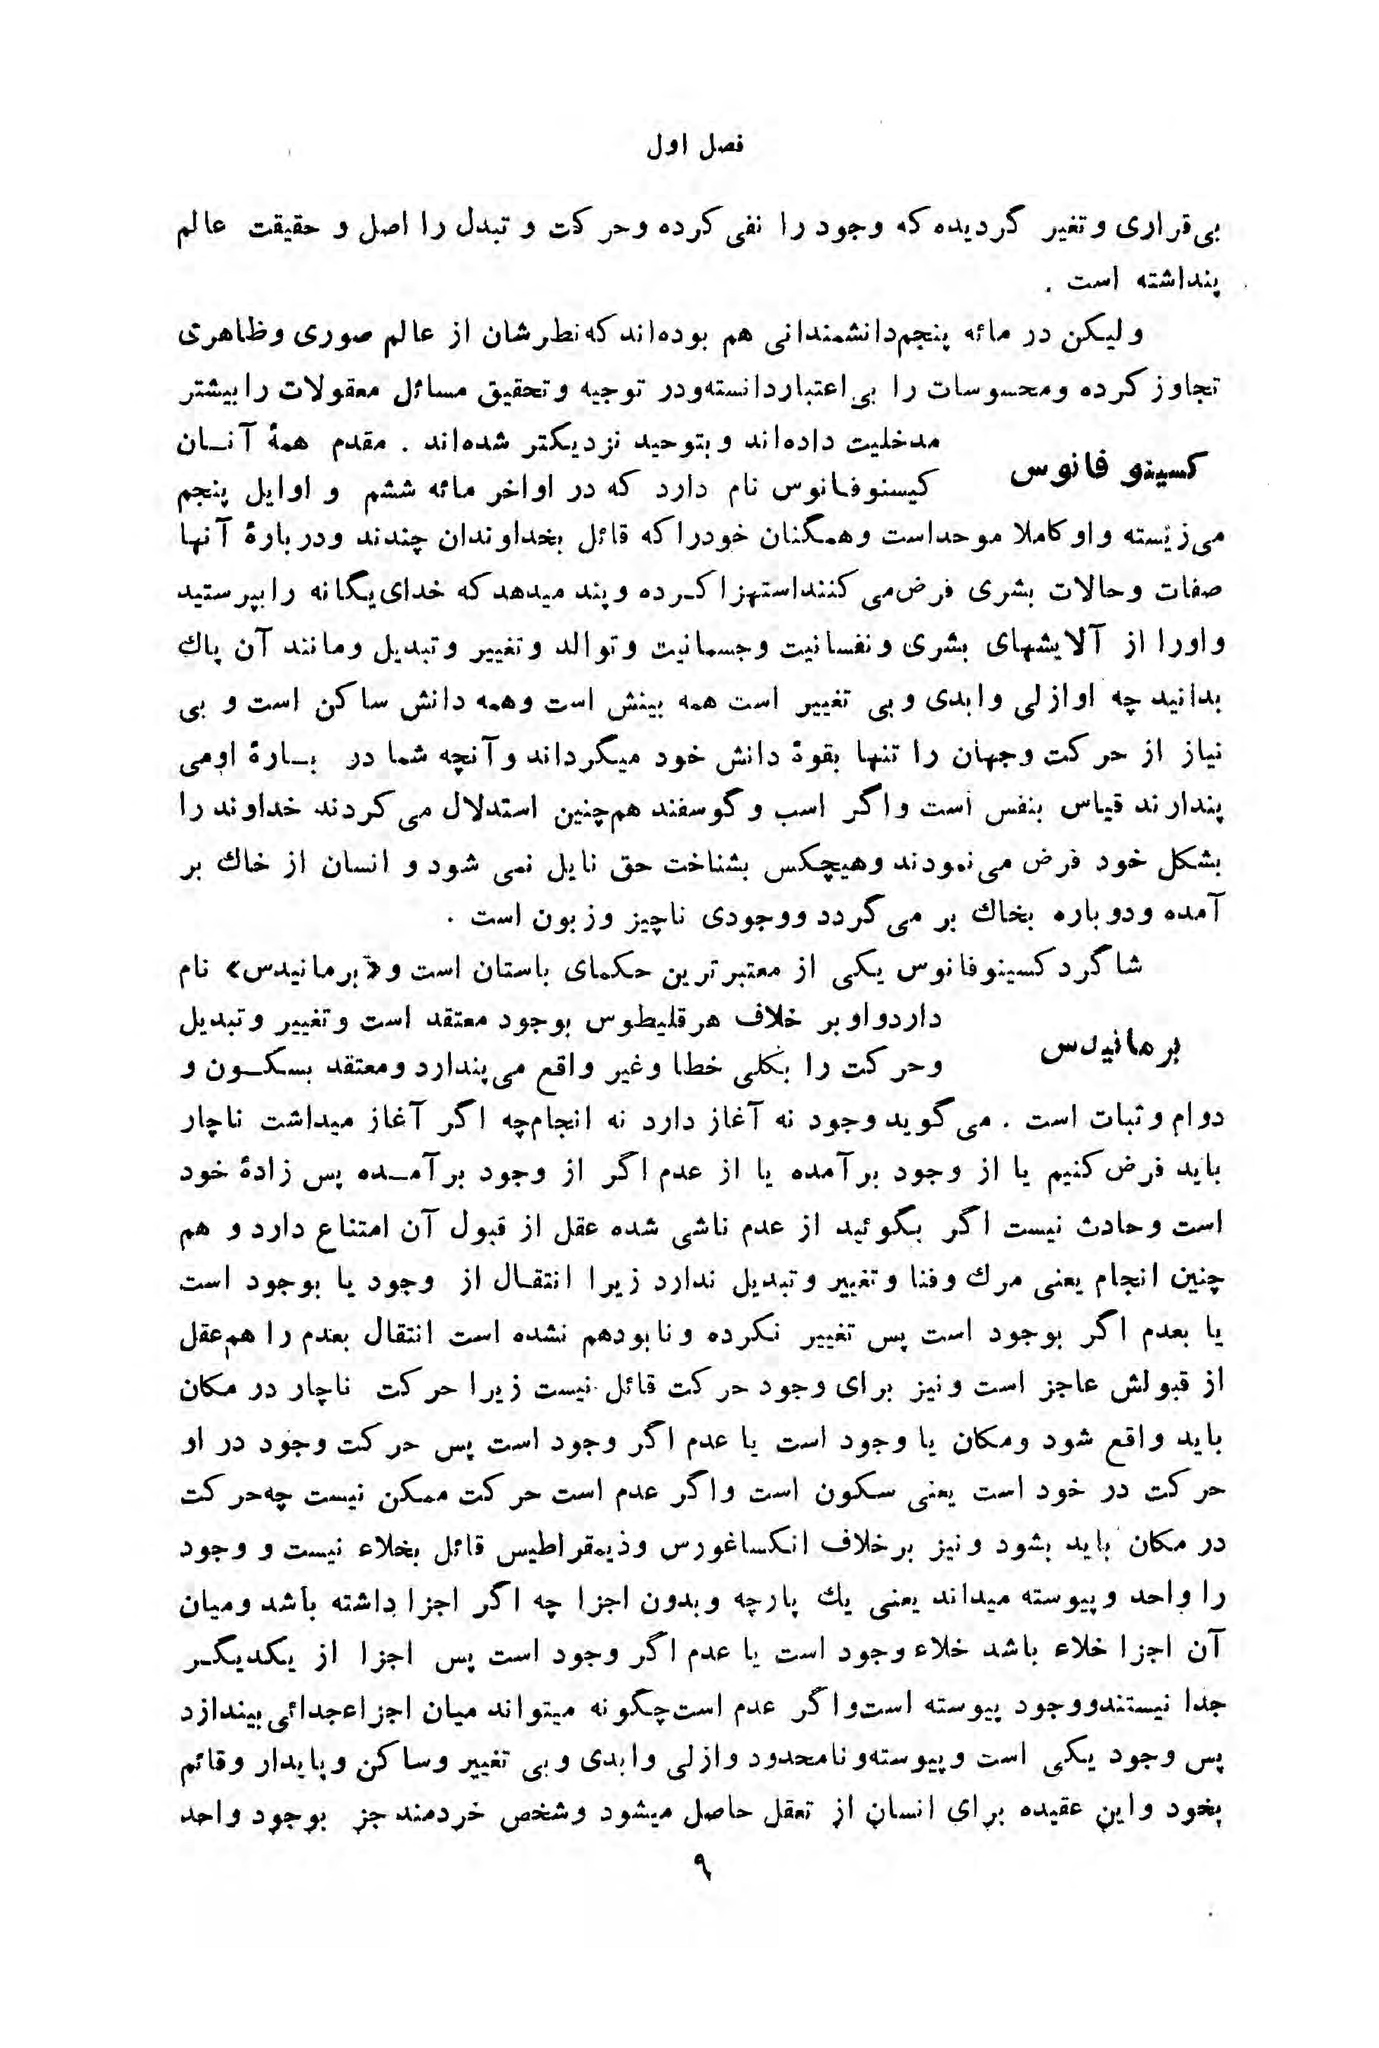 فصل اول
بی‌قراری و تغیر گردیده که وجود را نفی کرده و حرکات و تبدل را اصل و حقیقت عالم
پنداشته است .
ولیکن در مائه پنجم دانشمندانی هم بوده‌اند که نظرشان از عالم صوری و ظاهری
تجاوز کرده و محسوسات را بی‌اعتبار دانسته و در توجیه و تحقیق مسائل معقولات را بیشتر
مدخلیت داده‌اند و بتوحید نزدیکتر شده‌اند . مقدم همهٔ آنان
کسینو فانوس
کیسنوفانوس نام دارد که در اواخر مائه ششم و اوایل پنجم
می‌زیسته و او کاملا موحد است و همگنان خود را که قائل بخداوندان چندند و دربارهٔ آنها
صفات و حالات بشری فرض می‌کنند استهزا کرده و پند میدهد که خدای یگانه را بپرستید
و او را از آلایشهای بشری و نفسانیت و جسمانیت و توالد و تغییر و تبدیل و مانند آن پاك
بدانید چه او ازلی و ابدی و بی تغییر است همه بینش است و همه دانش ساکن است و بی
نیاز از حرکت و جهان را تنها بقوهٔ دانش خود میگرداند و آنچه شما در بارهٔ او می
پندارند قیاس بنفس است و اگر اسب و گوسفند هم‌چنین استدلال می‌کردند خداوند را
بشکل خود فرض می‌نمودند و هیچکس بشناخت حق نایل نمی شود و انسان از خاك بر
آمده و دوباره بخاك بر می‌گردد و وجودی ناچیز و زبون است .
شاگرد کسینوفانوس یکی از معتبرترین حکمای باستان است و «برمانیدس» نام
دارد و او بر خلاف هرقلیطوس بوجود معتقد است و تغییر و تبدیل
برمانیدس
و حرکت را بکلی خطا و غیر واقع می‌پندارد و معتقد بسکون و
دوام و ثبات است . می‌گوید وجود نه آغاز دارد نه انجام چه اگر آغاز میداشت ناچار
باید فرض کنیم یا از وجود برآمده یا از عدم اگر از وجود برآمده پس زادهٔ خود
است و حادث نیست اگر بگوئید از عدم ناشی شده عقل از قبول آن امتناع دارد و هم
چنین انجام یعنی مرك و فنا و تغییر و تبدیل ندارد زیرا انتقال از وجود یا بوجود است
یا بعدم اگر بوجود است پس تغییر نکرده و نابود هم نشده است انتقال بعدم را هم عقل
از قبولش عاجز است و نیز برای وجود حرکت قائل نیست زیرا حرکت ناچار در مکان
باید واقع شود و مکان یا وجود است یا عدم اگر وجود است پس حرکت وجود در او
حرکت در خود است یعنی سکون است و اگر عدم است حرکت ممکن نیست چه حرکت
در مکان باید بشود و نیز برخلاف انکساغورس و ذیمقراطیس قائل بخلاء نیست و وجود
را واحد و پیوسته میداند یعنی یك پارچه و بدون اجزا چه اگر اجزا داشته باشد و میان
آن اجزا خلاء باشد خلاء وجود است یا عدم اگر وجود است پس اجزا از یکدیگر
جدا نیستند و وجود پیوسته است و اگر عدم است چگونه میتواند میان اجزاء جدائی بیندازد
پس وجود یکی است و پیوسته و نامحدود و ازلی و ابدی و بی تغییر و ساکن و پایدار و قائم
بخود و این عقیده برای انسان از تعقل حاصل میشود و شخص خردمند جز بوجود واحد
۹